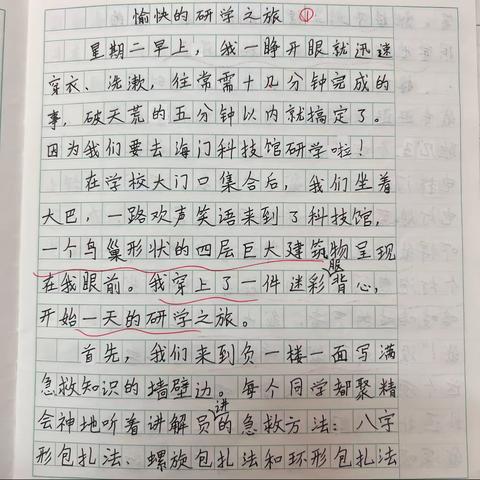 愉快的研学之旅 ①
星期二早上，我一睁开眼就迅速
穿衣、洗漱，往常需十几分钟完成的
事，破天荒的五分钟以内就搞定了。
因为我们要去海门科技馆研学啦！
在学校大门口集合后，我们坐着
大巴，一路欢声笑语来到了科技馆，
一个鸟巢形状的四层巨大建筑物呈现
在我眼前。我穿上了一件迷彩服背心，
开始一天的研学之旅。
首先，我们来到负一楼一面写满
急救知识的墙壁边。每个同学都聚精
会神地听着讲解员讲的急救方法：八字
形包扎法、螺旋包扎法和环形包扎法